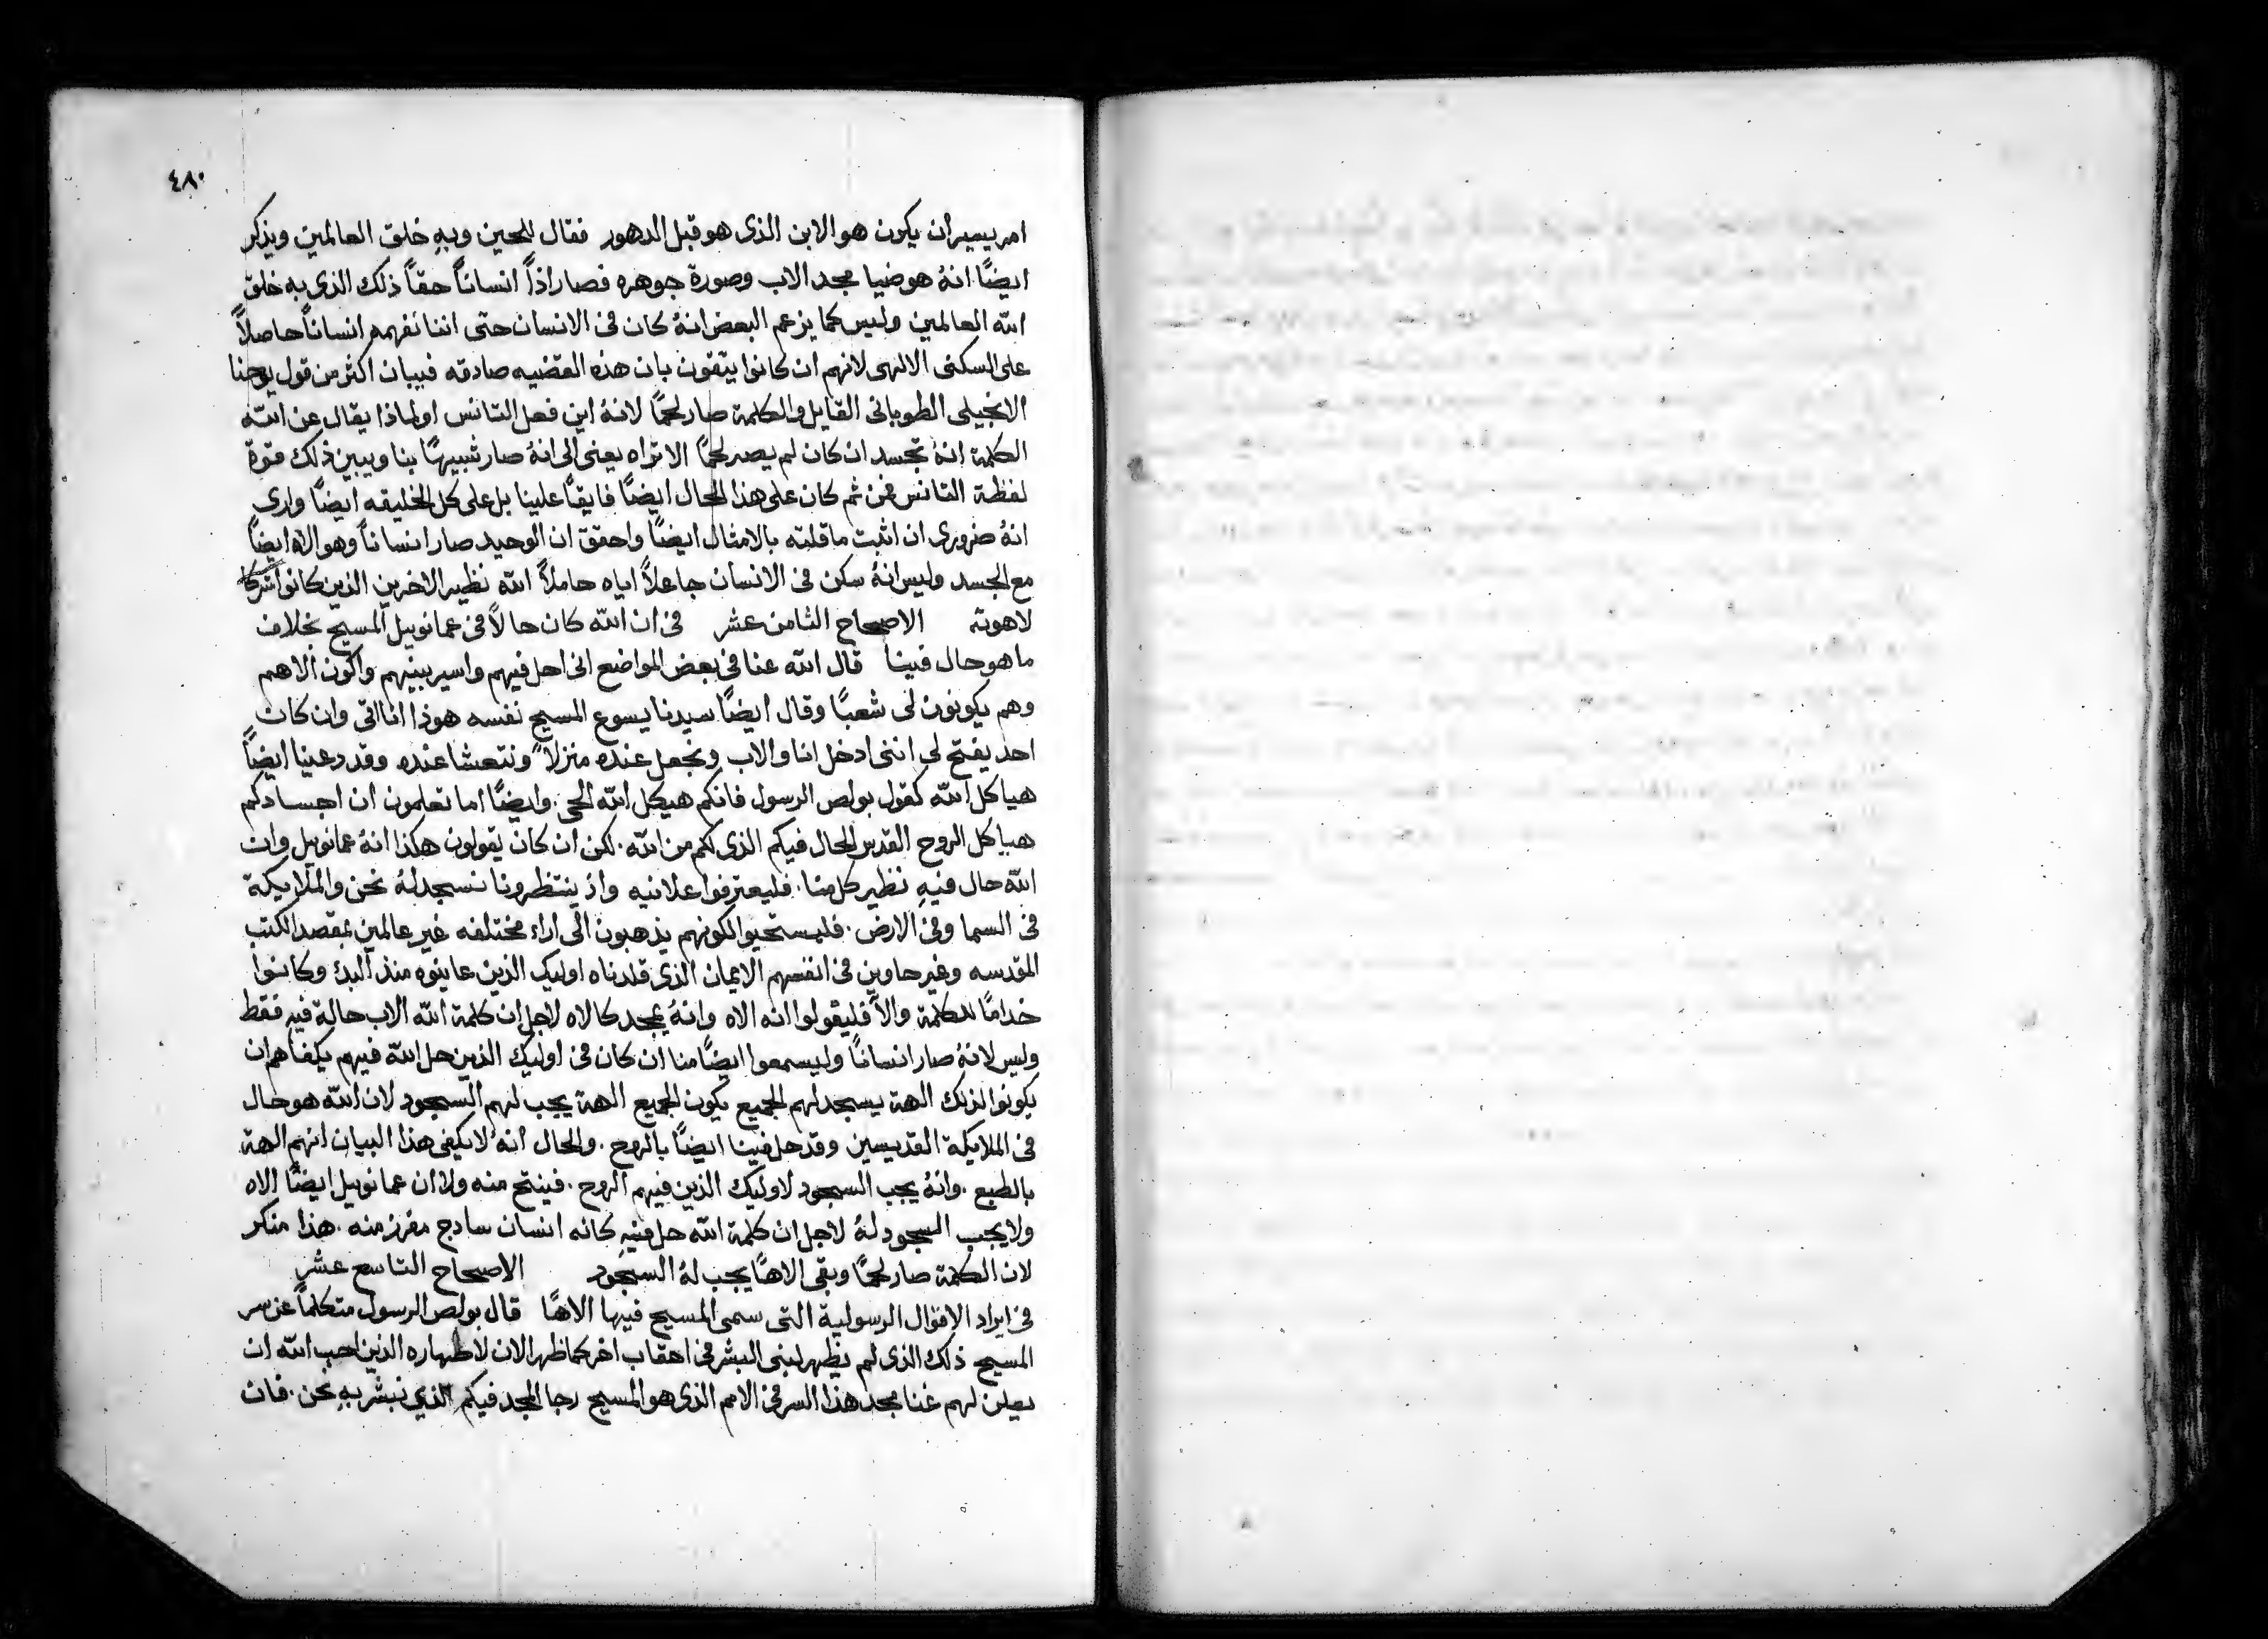 ٤٨٠
امر يسير ان يكون هو الابن الذى هو قبل الدهور فقال للحين وبهِ خلق العالمين ويذكر
ايضًا انهُ هو ضيا مجد الاب وصورة جوهره فصار اذاً انساناً حقاً ذلك الذى به خلق
الله العالمين وليس كما يزعم البعض انهُ كان فى الانسان حتى اننا نفهمه انساناً حاصلاً
على السكنى الالهى لانهم ان كانوا يتقون بان هذه القضيه صادقه فيبان اكثر من قول يوحنا
الانجيلى الطوبانى القايل والكلمة صار لحمًا لانهُ اين فعل التانس او لماذا يقال عن الله
الكلمة انهُ تجسد ان كان لم يصر لحمًا الا تراه يعنى الى انهُ صار شبيهًا بنا ويبين ذلك قوة
لفظة التانس فمن ثم كان على هذا الحال ايضًا فايقاً علينا بل على كل الخليقه ايضًا وارى
انهُ ضرورى ان اثبت ما قلته بالامثال ايضًا واحقق ان الوحيد صار انساناً وهو الاه ايضاً
مع الجسد وليس انهُ سكن فى الانسان جاعلاً اياه حاملاً الله نظير الاخرين الذين كانوا شركا
لاهوته الاصحاح الثامن عشر فى ان الله كان حالاً فى عمانوييل المسيح بخلاف
ما هو حال فينا قال الله عنا فى بعض المواضع انى احل فيهم واسير بينهم واكون الاهم
وهم يكونون لى شعبًا وقال ايضًا سيدنا يسوع المسيح نفسه هوذا انا اتى وان كان
احد يفتح لى اننى ادخل انا والاب ونجعل عنده منزلاً ونتعشا عنده وقد دعينا ايضاً
هياكل الله كقول بولص الرسول فانكم هيكل الله الحى. وايضًا اما تعلمون ان اجسادكم
هياكل الروح القدس الحال فيكم الذى لكم من الله. لكن ان كان يقولون هكذا انهُ عمانوييل وان
الله حال فيهِ نظير كل منا. فليعترفوا علانيه واذ ينتظرونا نسجد لهُ نحن والملايكة
فى السما وفى الارض. فليستحيوا لكونهم يذهبون الى اراء مختلفه غير عالمين بمقصد الكتب
المقدسه وغير حاوين فى انفسهم الايمان الذى قلدناه اوليك الذين عاينوه منذ البدء وكانوا
خدامًا للكلمة والاّ فليقولوا انه الاه وانهُ يمجد كالاه لاجل ان كلمة الله الاب حالة فيهِ فقط
وليس لانهُ صار انسانًا وليسمعوا ايضًا منا ان كان فى اوليك الذين حل الله فيهم يكفاهم ان
يكونوا لذلك الهة يسجد لهم الجميع يكون الجميع الهة يجب لهم السجود لان الله هو حال
فى الملايكة القديسين وقد حل فينا ايضًا بالروح. والحال انهُ لا يكفى هذا البيان انهم الهة
بالطبع. وانهُ يجب السجود لاوليك الذين فيهم الروح. فينتج منه ولا ان عمانوييل ايضًا الاه
ولا يجب السجود لهُ لاجل ان كلمة الله حل فيهِ كانه انسان سادج مفرز منه. هذا منكر
لان الكلمة صار لحمًا وبقى الاهًا يجب لهُ السجود الاصحاح التاسع عشر
فى ايراد الاقوال الرسولية التى سمى المسيح فيها الاهًا قال بولص الرسول متكلماً عن سر
المسيح ذلك الذى لم يظهر لبنى البشر فى احقاب اخر كما ظهر الان لاطهاره الذين احب الله ان
يعلن لهم غنا مجد هذا السر فى الامم الذى هو المسيح رجا المجد فيكم الذي نبشر بهِ نحن. فان